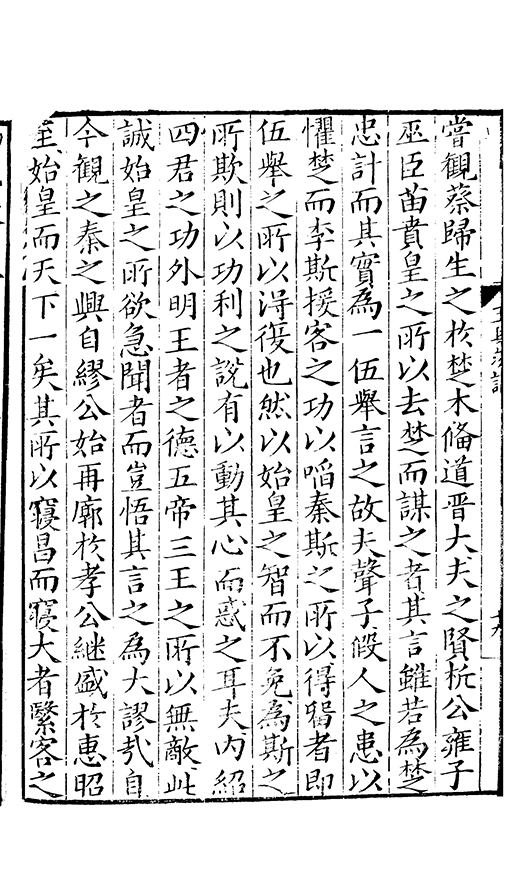 嘗觀蔡歸生之於楚木僃道晋大夫之賢析公雍子
巫臣苗賁皇之所以去楚而謀之者其言雖若為楚
忠計而其實為一伍舉言之故夫聲子假人之患以
懼楚而李斯援客之功以啗秦斯之所以得留者即
伍舉之所以得復也然以始皇之智而不免為斯之
所欺則以功利之說有以動其心而惑之耳夫内紹
四君之功外明王者之德五帝三王之所以無敵此
誠始皇之所欲急聞者而豈悟其言之為大謬㢤自
今觀之秦之興自繆公始再廓於孝公継盛於惠昭
至始皇而天下一矣其所以寖昌而寖大者繄客之